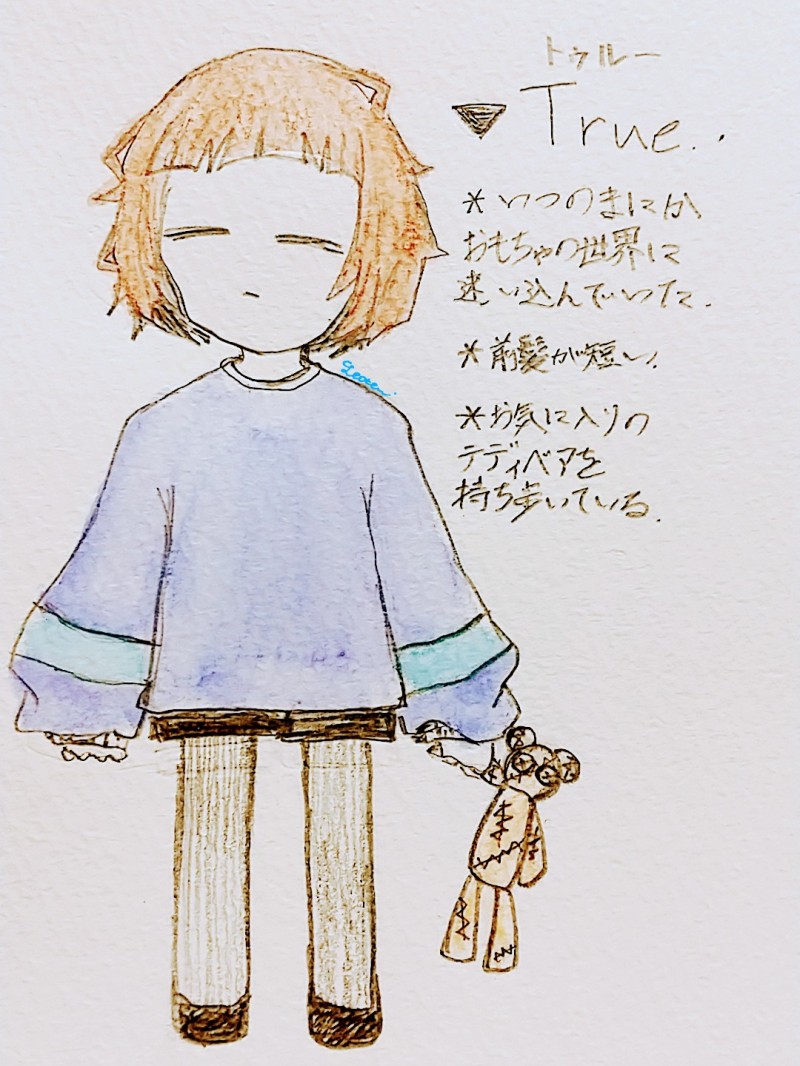 トゥルー
▼ True..
*いつのまにか
おもちゃの世界に
迷い込んでいった.
*前髪が短い.
*お気に入りの
テディベアを
持ち歩いている.